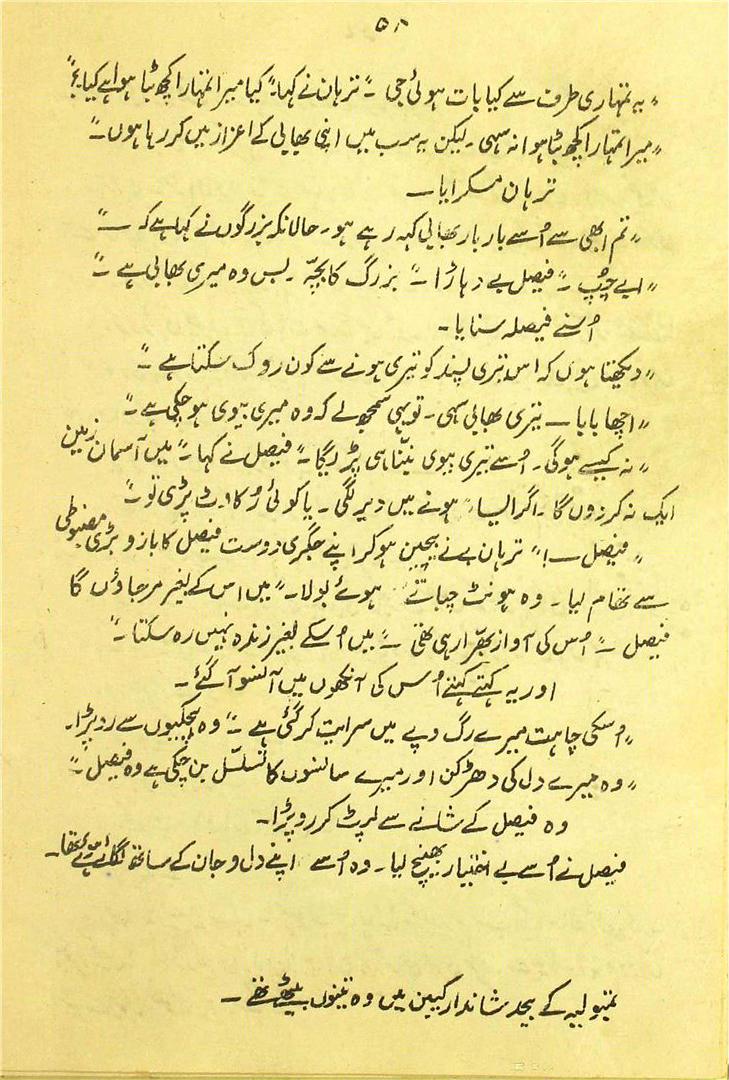 ۵۸
"یہ تمہاری طرف سے کیا بات ہوئی جی ۔" ترہان نے کہا۔" کیا میرا تمہارا کچھ بٹا ہوا ہے کیا؟"
"میرا تمہارا کچھ بٹا ہوا نہ سہی ۔ لیکن یہ سب میں اپنی بھابی کے اعزاز میں کر رہا ہوں ۔"
ترہان مسکرایا —
"تم ابھی سے اُسے بار بار بھابی کہہ رہے ہو۔ حالانکہ بزرگوں نے کہا ہے کہ —"
"ابے چُپ ۔" فیصل نے دہاڑا ۔" بزرگ کا بچّہ ۔ بس وہ میری بھابی ہے ۔"
اُسنے فیصلہ سنایا ۔
"دیکھتا ہوں کہ اس تیری پسند کو تیری ہونے سے کون روک سکتا ہے ۔"
"اچھا بابا — تیری بھابی سہی ۔ تو یہی سمجھ لے کہ وہ میری بیوی ہو چکی ہے ۔"
"نہ کیسے ہوگی ۔ اُسے تیری بیوی بننا ہی پڑیگا ۔" فیصل نے کہا ۔" میں آسمان زمین
ایک نہ کر دوں گا ۔ اگر ایسا ہونے میں دیر لگی ۔ یا کوئی رُکاوٹ پڑی تو ۔"
"فیصل —!" ترہان نے بیچین ہو کر اپنے جگری دوست فیصل کا بازو بڑی مضبوطی
سے تھام لیا ۔ وہ ہونٹ چباتے ہوئے بولا ۔" میں اس کے بغیر مر جاؤں گا
فیصل ۔" اُس کی آواز بھرّا رہی تھی ۔" میں اُسکے بغیر زندہ نہیں رہ سکتا ۔"
اور یہ کہتے کہتے اُس کی آنکھوں میں آنسو آ گئے ۔
"اُسکی چاہت میرے رگ و پے میں سرایت کر گئی ہے ۔" وہ ہچکیوں سے رو پڑا ۔
"وہ میرے دل کی دھڑکن اور میرے سانسوں کا تسلسل بن چکی ہے وہ فیصل ۔"
وہ فیصل کے شانے سے لپٹ کر رو پڑا ۔
فیصل نے اُسے بے اختیار بھینچ لیا ۔ وہ اُسے اپنے دل و جان کے ساتھ لگائے ہوئے تھا ۔
کے بیحد شاندار کیبن میں وہ تینوں بیٹھے تھے —